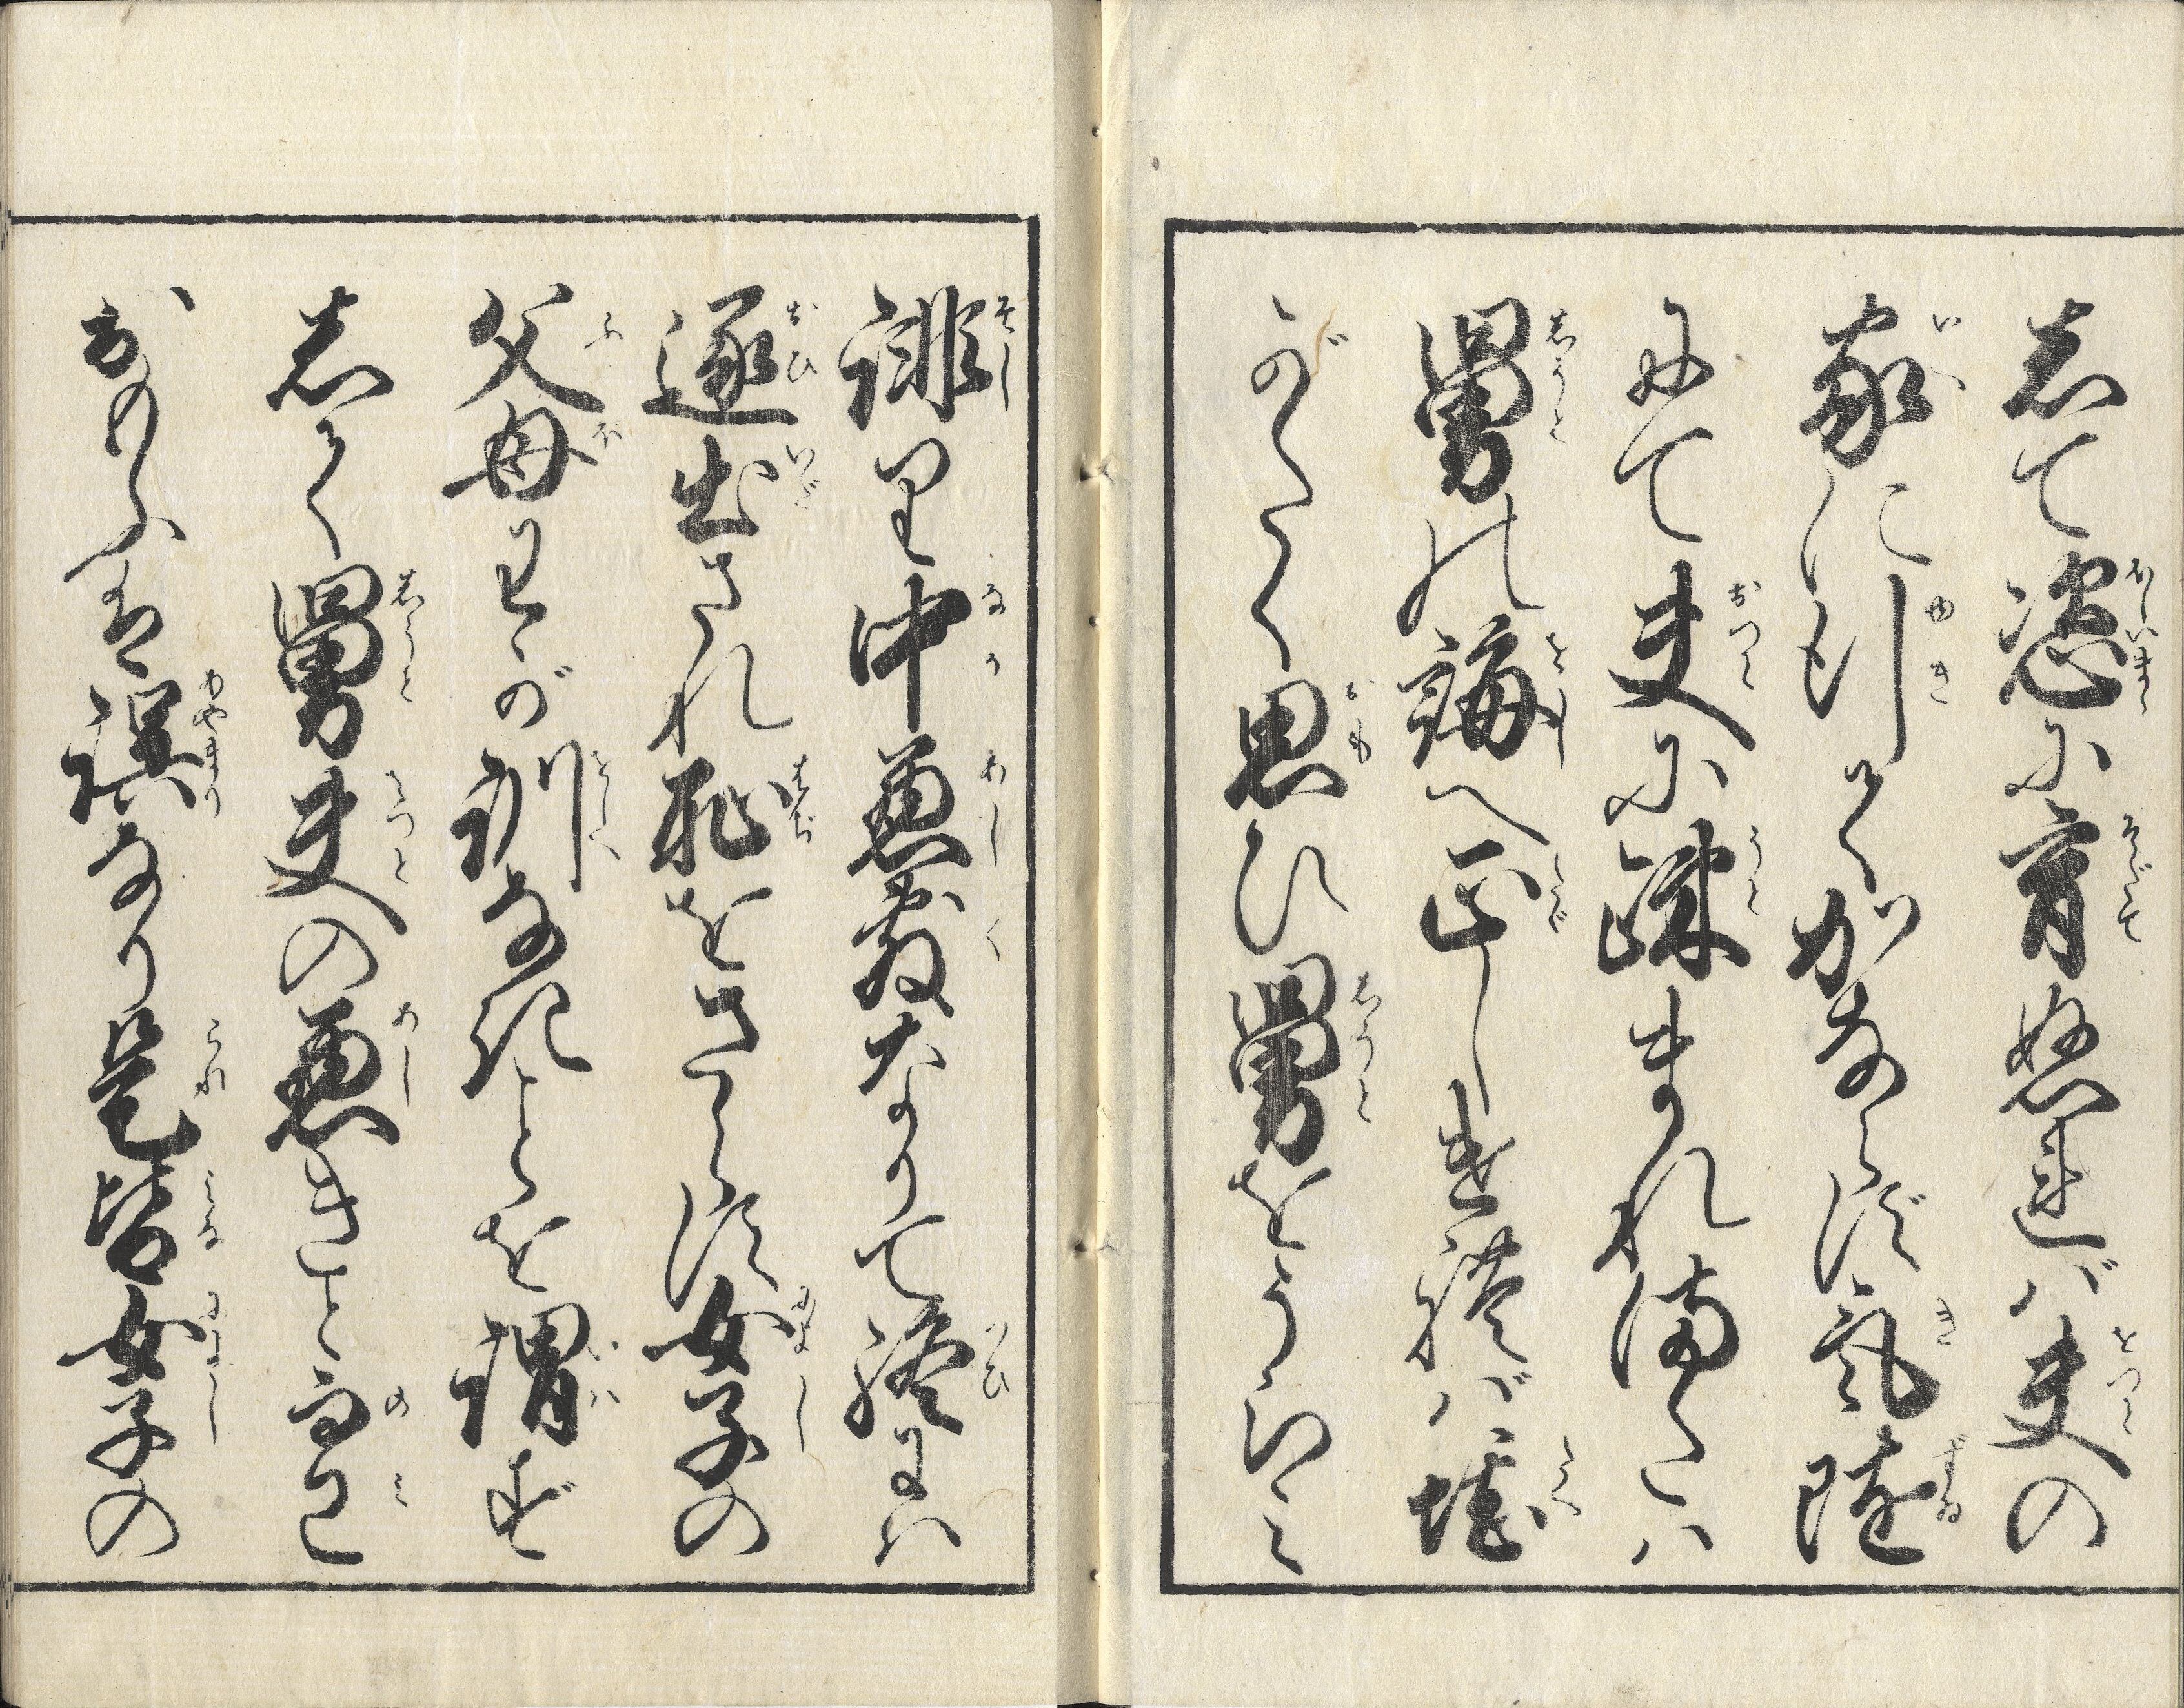 して恣に育ぬれば夫の
家に行てかならず気随
にて夫に疎まれ又は
舅の誨へ正しければ堪
がたく思ひ舅をうらみ
誹り中悪敷なりて終には
逐出され恥をさらす女子の
父母わが訓なきことを謂ず
して舅夫の悪きことのみ
おもふは誤なり是皆女子の